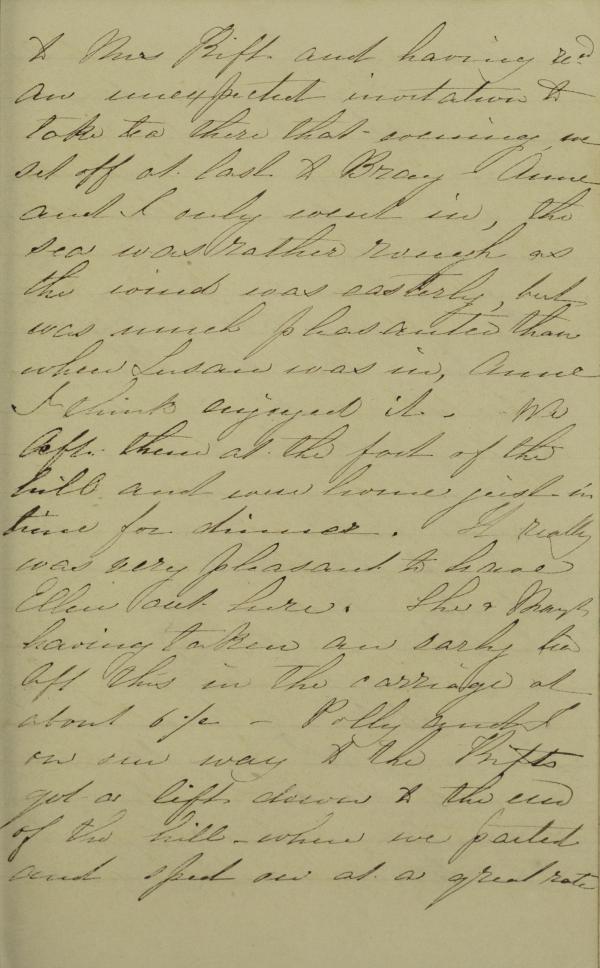 to Mrs Kift and having recd
an unexpected invitation to
take tea there that evening we
set off at last to Bray. Anne
and I only went in, the
sea was rather rough as
the wind was easterly, but
was much pleasanter than
when Susan was in, Anne
I think enjoyed it. We
left them at the foot of the
hill and were home just in
time for dinner. It really
was very pleasant to have
Ellen out here. She &
having taken an early tea
left this in the carriage at
about 6 1/2 - Polly and I
on our way to the Kifts
got a lift down to the end
of the hill - where we parted
and sped on at a great rate